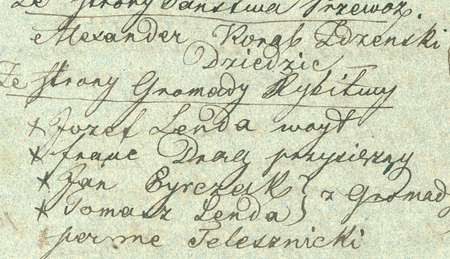 Ze strony Państwa Przewoz.
Alexander Korab Ldzenski
Dziedzic
Ze strony Gromady Rybitwy
x Jozef Lenda woyt
x franc Drag przysiężny
x Jan Gyrczak } z Gromady
x Tomasz Lenda
per me Telesznicki